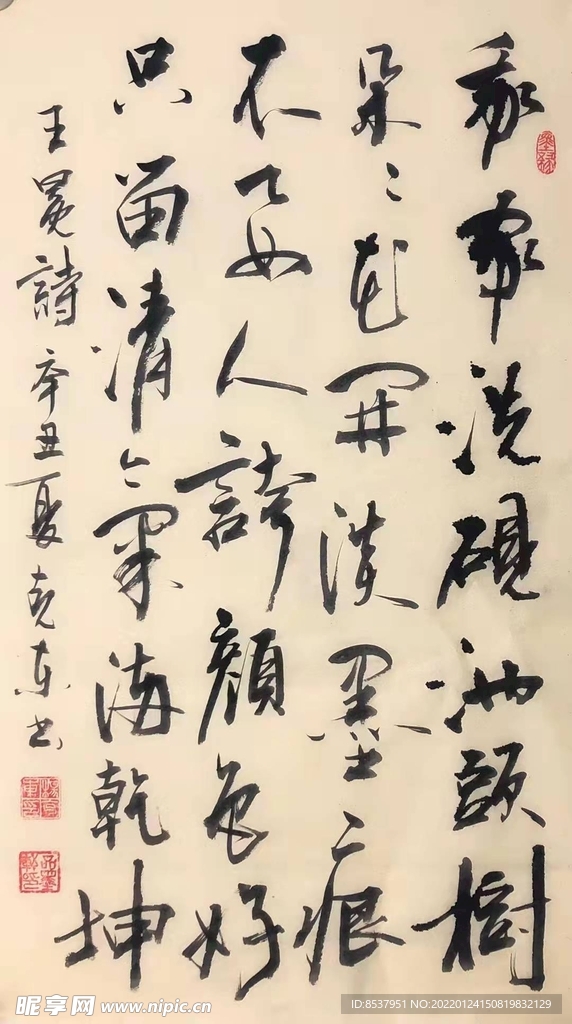 我家洗硯池頭樹
朵々花開淡墨痕
不要人誇顏色好
只留清氣滿乾坤
王冕詩 辛丑夏克东书
昵享网 www.nipic.cn
ID:8537951 NO:20220124150819832129